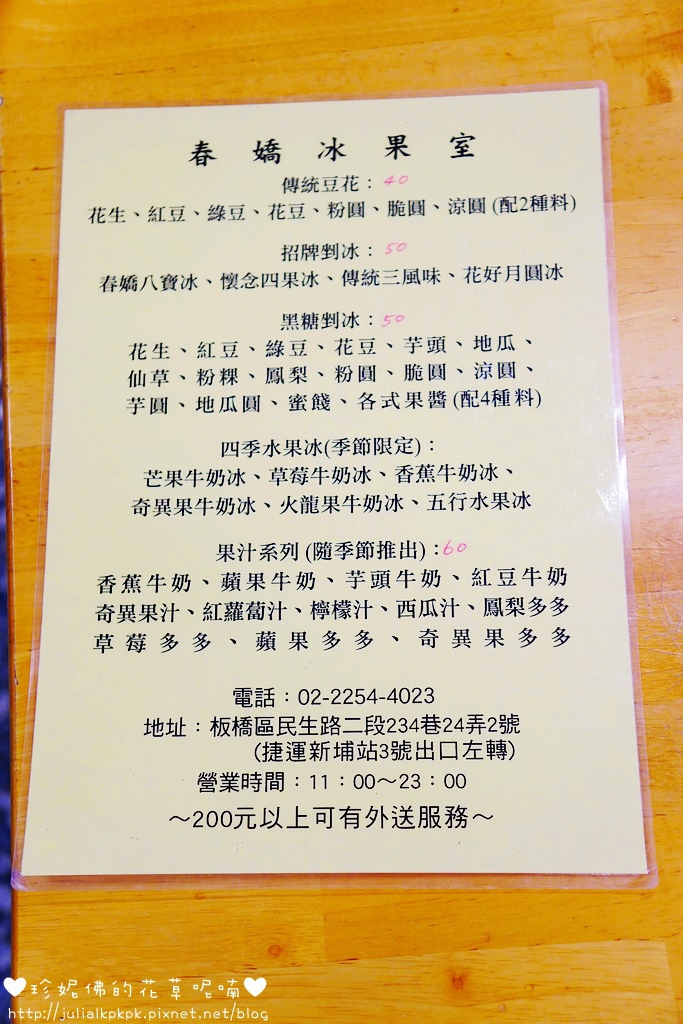 春嬌冰果室
傳統豆花：40
花生、紅豆、綠豆、花豆、粉圓、脆圓、涼圓(配2種料)
招牌剉冰：50
春嬌八寶冰、懷念四果冰、傳統三風味、花好月圓冰
黑糖剉冰：50
花生、紅豆、綠豆、花豆、芋頭、地瓜、
仙草、粉粿、鳳梨、粉圓、脆圓、涼圓、
芋圓、地瓜圓、蜜餞、各式果醬(配4種料)
四季水果冰(季節限定)：
芒果牛奶冰、草莓牛奶冰、香蕉牛奶冰、
奇異果牛奶冰、火龍果牛奶冰、五行水果冰
果汁系列(隨季節推出)：60
香蕉牛奶、蘋果牛奶、芋頭牛奶、紅豆牛奶
奇異果汁、紅蘿蔔汁、檸檬汁、西瓜汁、鳳梨多多
草莓多多、蘋果多多、奇異果多多
電話：02-2254-4023
地址：板橋區民生路二段234巷24弄2號
(捷運新埔站3號出口左轉)
營業時間：11：00～23：00
～200元以上可有外送服務～
♥珍妮佛的花草呢喃♥
http://julialkpkpk.pixnet.net/blog